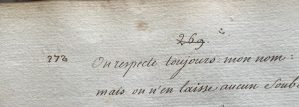 269
273 On respecte toujours mon nom:
mais on n'en laisse aucun